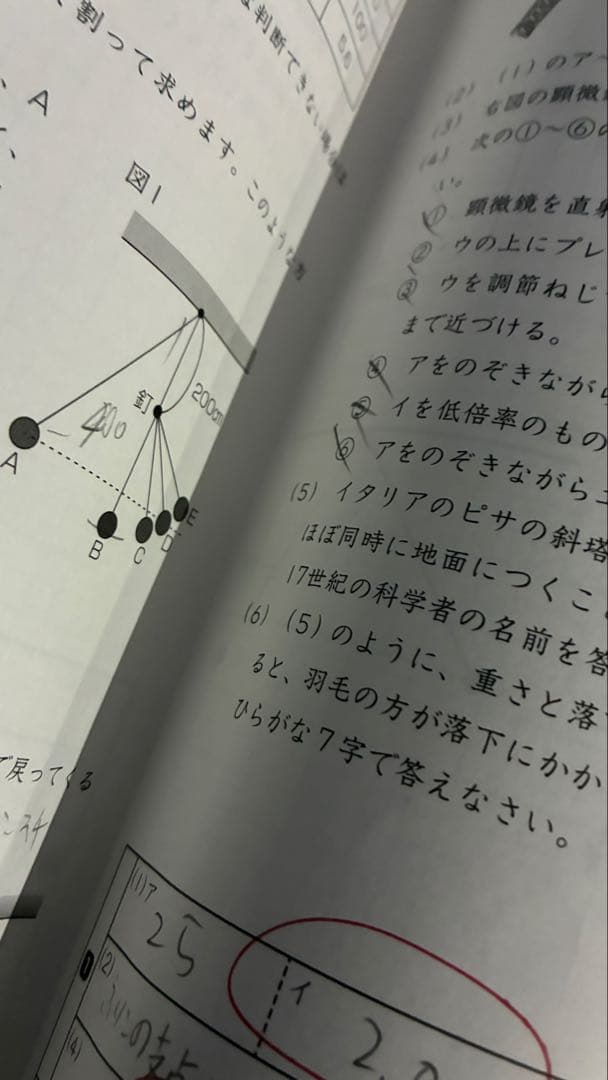 100
58
な判断できない場合は
割って求めます。このような方
、A
図1
200cm
釘
400
A
B
C
D
E
で戻ってくる
(2) (1)のア
(3) 右図の顕微
(4) 次の①~⑥の
い。
① 顕微鏡を直射
② ウの上にプレ
③ ウを調節ねじ
まで近づける。
④ アをのぞきなが
⑤ イを低倍率のもの
⑥ アをのぞきながら
(5) イタリアのピサの斜塔
ほぼ同時に地面につくこ
17世紀の科学者の名前を答
(6) (5)のように、重さと落
ると、羽毛の方が落下にかか
ひらがな7字で答えなさい。
1
(1)ア
25
イ
2.0
(2)
の支点
(4)